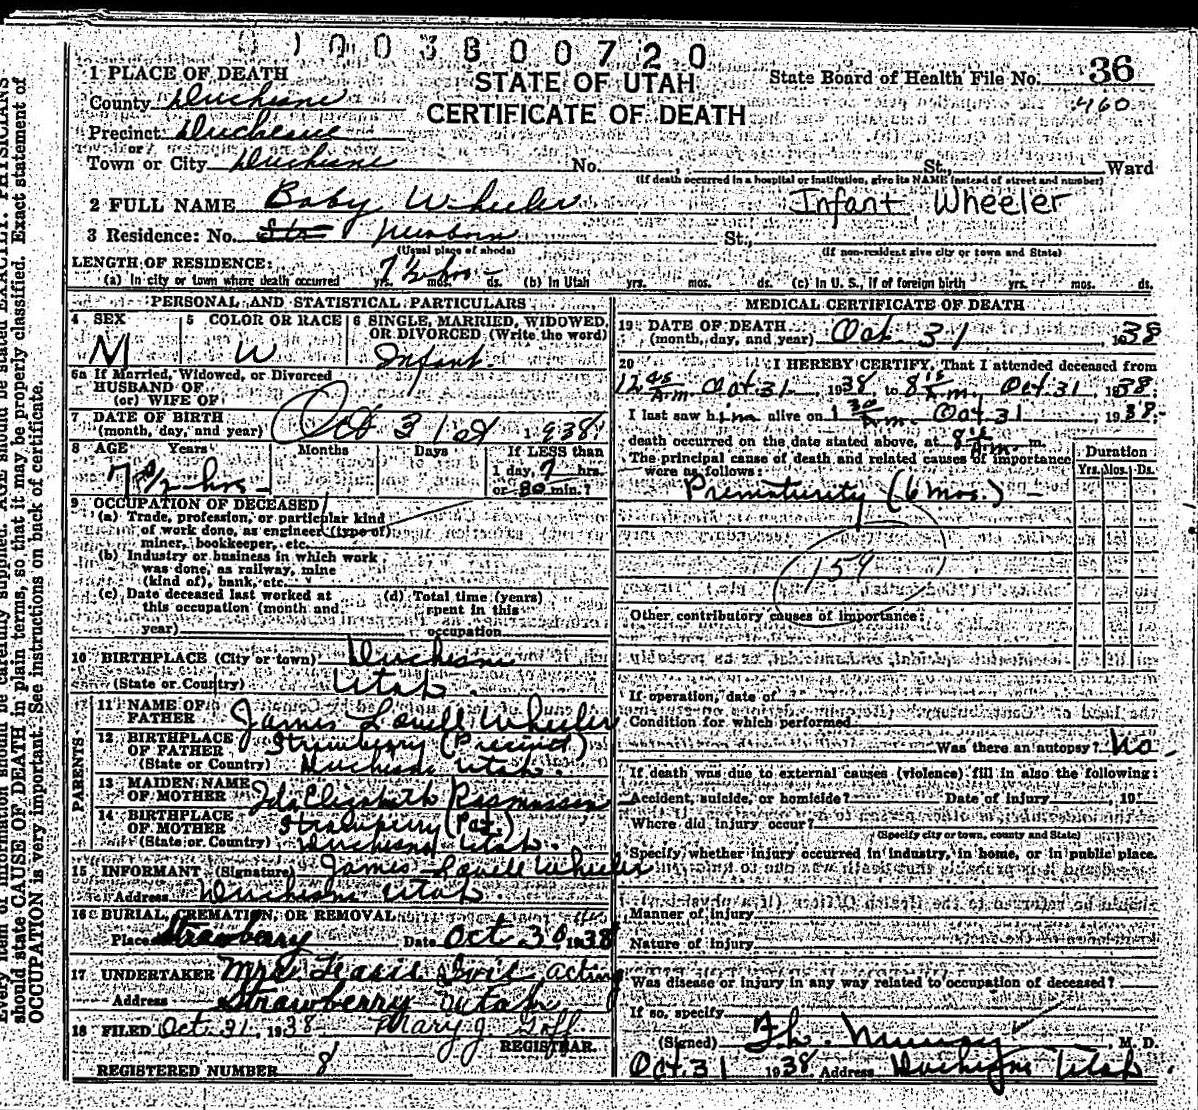 0 1 0 0 3 8 0 0 7 2 0
STATE OF UTAH
CERTIFICATE OF DEATH
State Board of Health File No. 36
460
1 PLACE OF DEATH
County Duchesne
Precinct Duchesne
or
Town or City Duchesne No. St., Ward
(If death occurred in a hospital or institution, give its NAME instead of street and number)
2 FULL NAME Baby Wheeler Infant Wheeler
3 Residence: No. Str newborn St.,
(Usual place of abode) (If non-resident give city or town and State)
LENGTH OF RESIDENCE:
(a) In city or town where death occurred yrs. 7 1/2 hrs - mos. ds. (b) In Utah yrs. mos. ds. (c) In U. S., if of foreign birth yrs. mos. ds.
PERSONAL AND STATISTICAL PARTICULARS
4 SEX M
5 COLOR OR RACE W
6 SINGLE, MARRIED, WIDOWED, OR DIVORCED (Write the word)
Infant.
6a If Married, Widowed, or Divorced
HUSBAND OF
(or) WIFE OF
7 DATE OF BIRTH
(month, day, and year) Oct 31st 1938
8 AGE Years Months Days If LESS than
7 1/2 hrs - 1 day, 7 hrs.
or 30 min.?
9 OCCUPATION OF DECEASED
(a) Trade, profession, or particular kind
of work done, as engineer (type of)
miner, bookkeeper, etc.
(b) Industry or business in which work
was done, as railway, mine
(kind of), bank, etc.
(c) Date deceased last worked at
this occupation (month and
year)
(d) Total time (years)
spent in this
occupation
10 BIRTHPLACE (City or town) Duchesne
(State or Country) Utah.
PARENTS
11 NAME OF
FATHER James Lovell Wheeler
12 BIRTHPLACE
OF FATHER Strawberry (Precinct)
(State or Country) Duchesne Utah.
13 MAIDEN NAME
OF MOTHER Ida Elizabeth Rasmussen
14 BIRTHPLACE
OF MOTHER Strawberry
(State or Country) Duchesne Utah.
15 INFORMANT (Signature) James Lovell Wheeler
Address Duchesne Utah
16 BURIAL, CREMATION, OR REMOVAL
Place Strawberry Date Oct 30 1938
17 UNDERTAKER Mrs acting
Address Strawberry Utah
18 FILED Oct 31, 1938 Mary J Goff
REGISTRAR.
REGISTERED NUMBER 8
MEDICAL CERTIFICATE OF DEATH
19 DATE OF DEATH
(month, day, and year) Oct 31, 1938
20 I HEREBY CERTIFY, That I attended deceased from
12 45 A.m. Oct 31, 1938 to 8 15 A.m. Oct. 31, 1938.
I last saw him alive on 1 30 A.m. Oct 31 1938.
death occurred on the date stated above, at 8 15 A.m. m.
The principal cause of death and related causes of importance
were as follows:
Duration
Yrs. Mos. Ds.
Prematurity (6 mos.) -
159
Other contributory causes of importance:
If operation, date of
Condition for which performed
Was there an autopsy? No -
If death was due to external causes (violence) fill in also the following:
Accident, suicide, or homicide? Date of injury , 19
Where did injury occur?
(Specify city or town, county and State)
Specify whether injury occurred in industry, in home, or in public place.
Manner of injury
Nature of injury
Was disease or injury in any way related to occupation of deceased?
If so, specify
(Signed) Murray, M. D.
Oct. 31 1938 Address Duchesne Utah.
should state CAUSE OF DEATH in plain terms, so that it may be properly classified. Exact statement of
OCCUPATION is very important. See instructions on back of certificate.